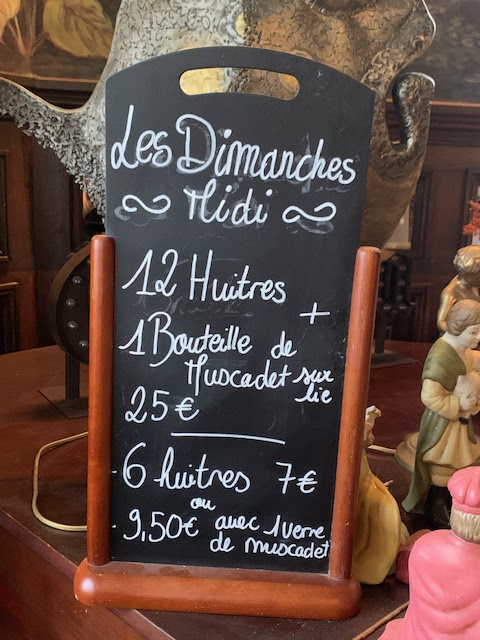 Les Dimanches
~ Midi ~
12 Huitres +
1 Bouteille de
Muscadet sur
lie
25€
- 6 huitres 7€
ou
- 9,50€ avec 1 verre
de muscadet